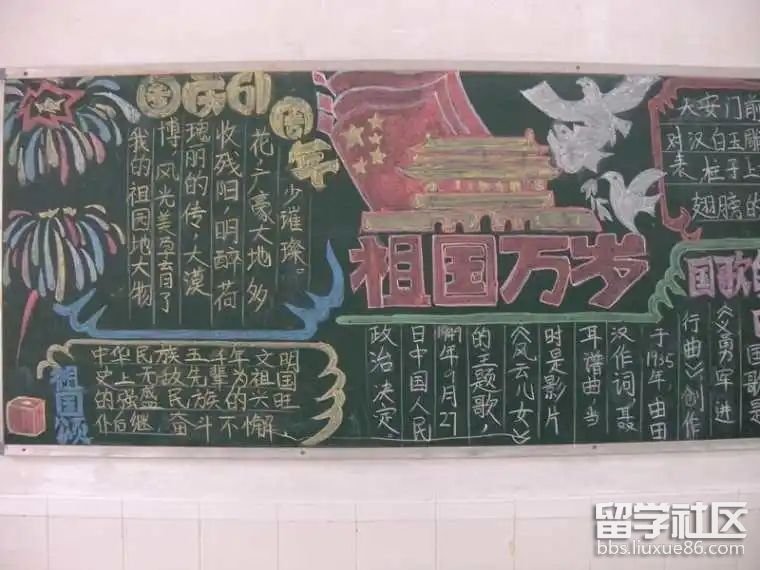 国庆61
周年
我的祖国地大物
博,风光美孕育了
瑰丽的传,大漠
收残阳,明醉荷
花,广豪大地多
少璀璨。
祖国万岁
天安门前
对汉白玉雕
表,柱子上
翅膀的
国歌的
《义勇军进
行曲》创作
于1935年,由田
汉作词,聂
耳谱曲,当
时是影片
《风云儿女》
的主题歌,
1949年9月27
日中国人民
政治决定。
祖国颂
中华民族五千年文明
史上无数先辈为祖国
的强盛民族的六旺
仆后继,奋斗不懈。
留学社区
bbs.liuxue86.com